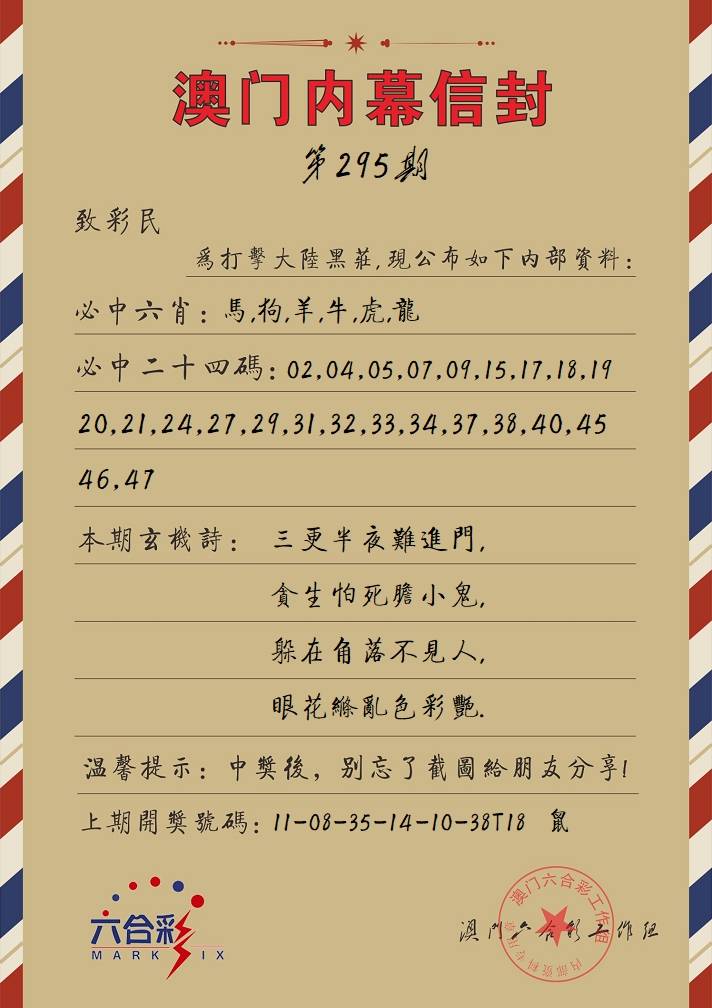 澳门内幕信封
第295期
致彩民
爲打擊大陸黑莊,現公布如下内部資料:
必中六肖:馬,狗,羊,牛,虎,龍
必中二十四碼:02,04,05,07,09,15,17,18,19
20,21,24,27,29,31,32,33,34,37,38,40,45
46,47
本期玄機詩: 三更半夜難進門,
貪生怕死膽小鬼,
躲在角落不見人,
眼花繚亂色彩艷.
温馨提示:中獎後,别忘了截圖給朋友分享!
上期開獎號碼:11-08-35-14-10-38T18 鼠
六合彩
MARK SIX
澳门六合彩工作组
澳门六合彩工作组
内部资料专用章